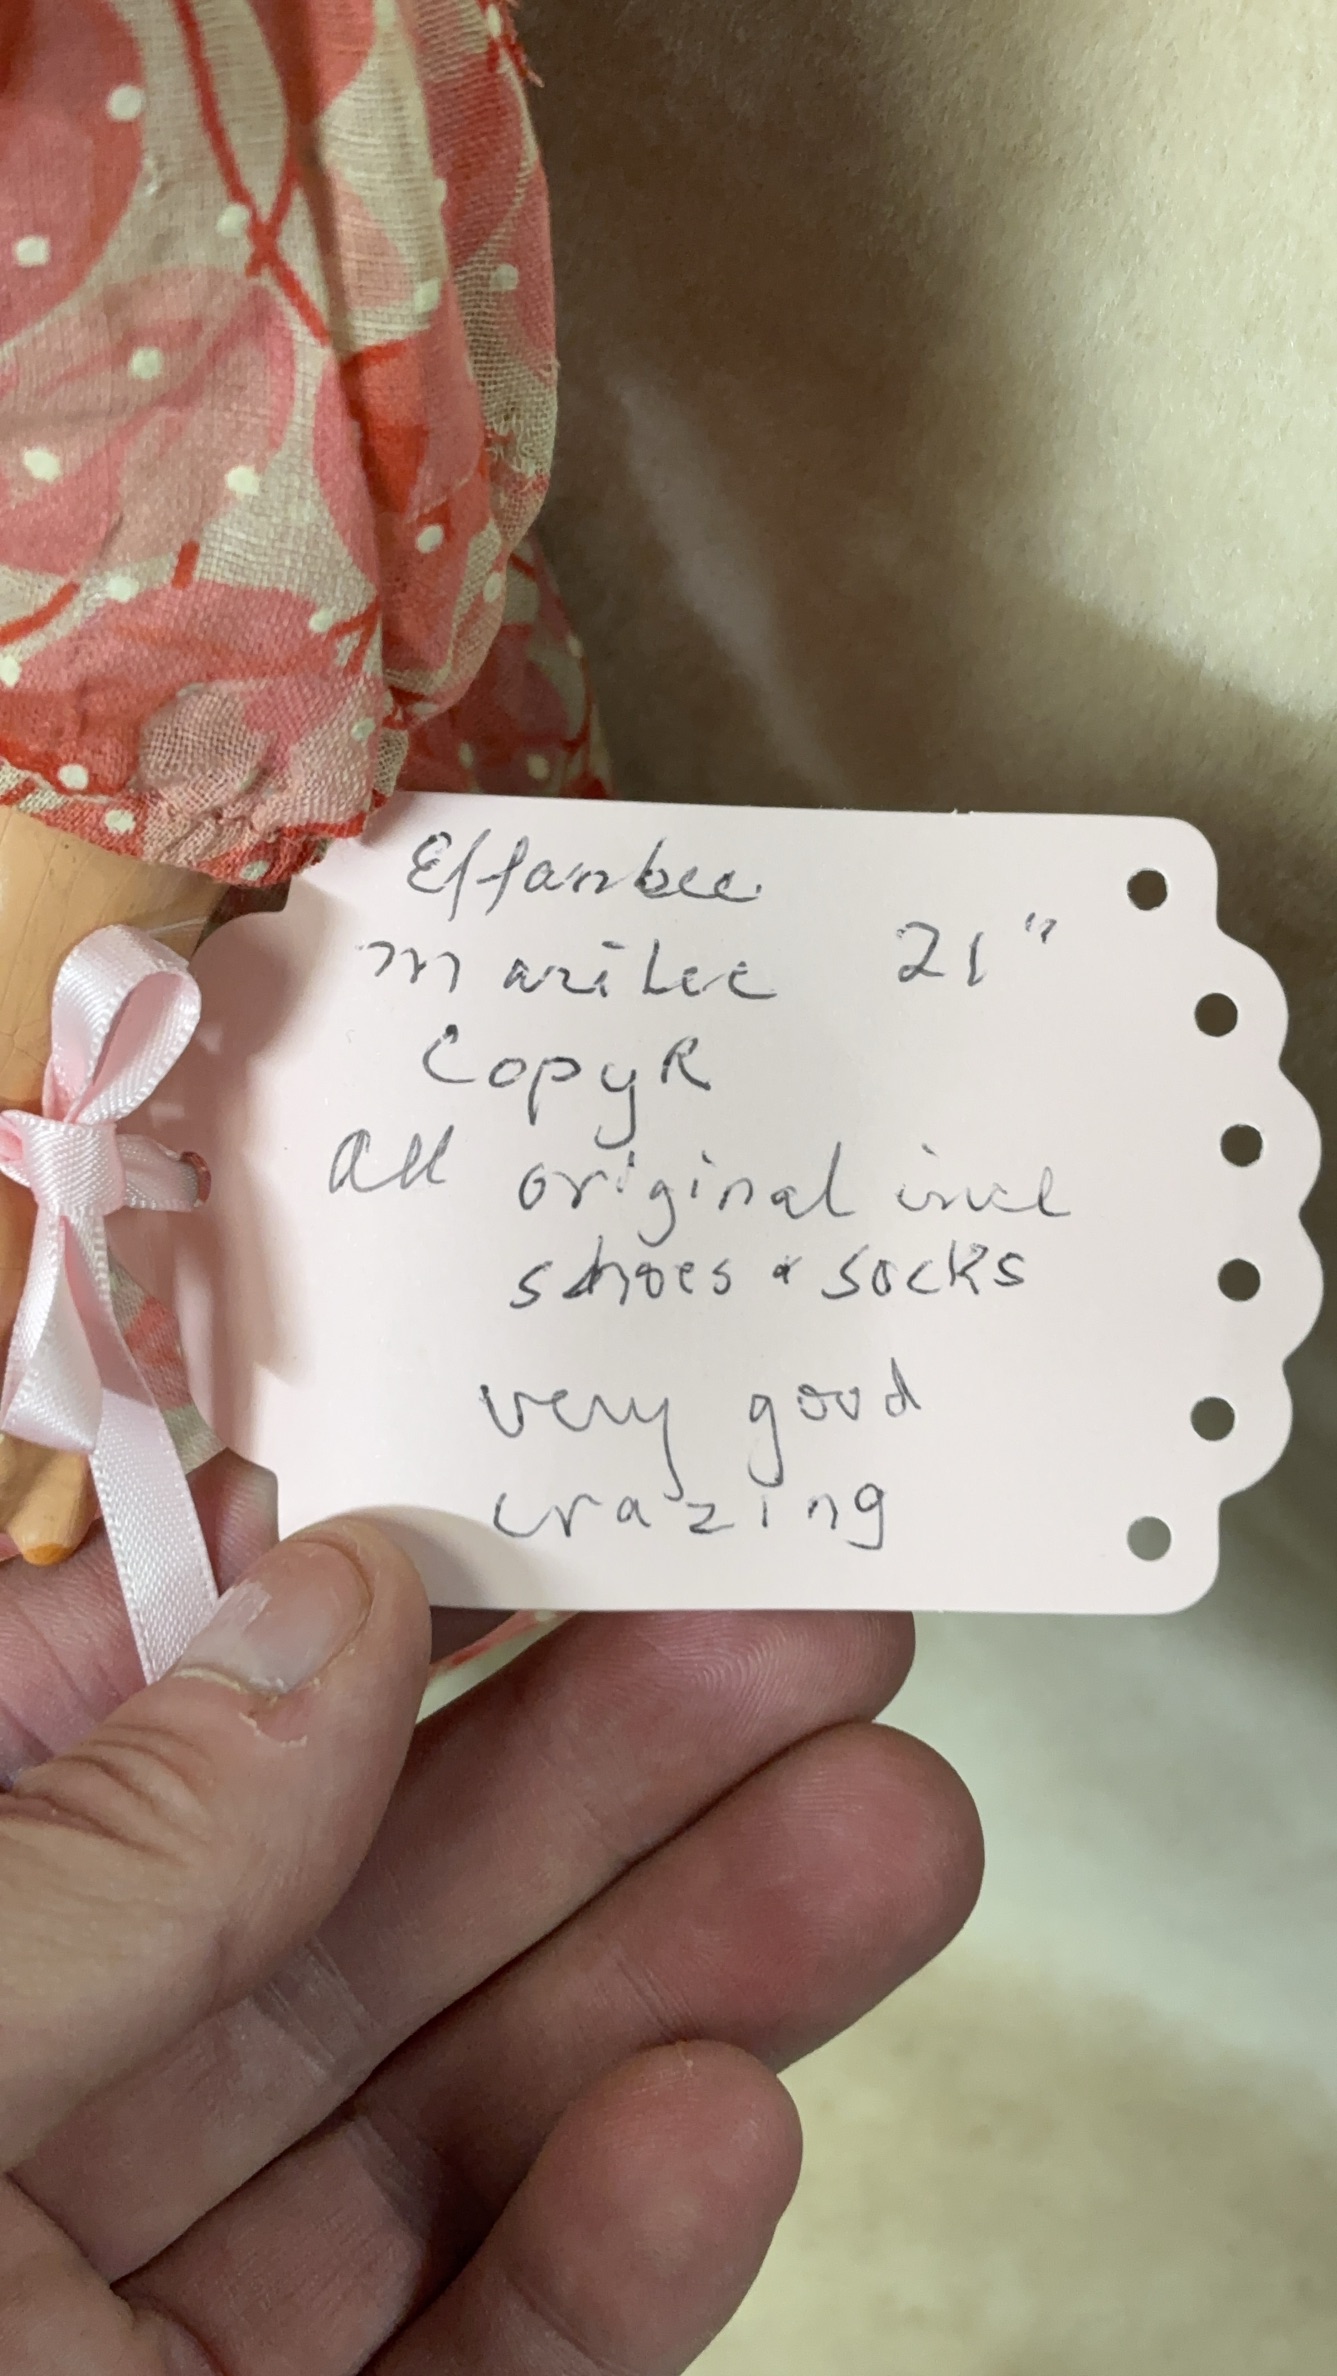 Effanbee
Marilee 21"
CopyR
all original incl
shoes & socks
very good
crazing